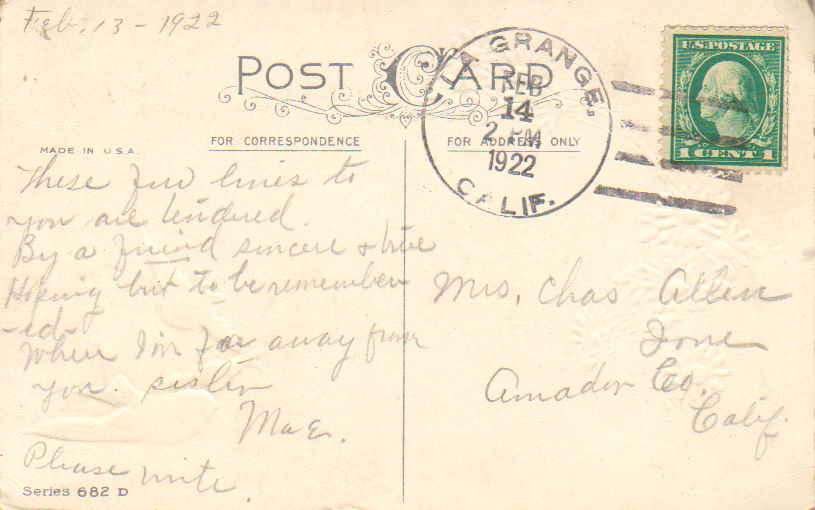 Feb. 13 - 1922
POST CARD
MADE IN U.S.A.
FOR CORRESPONDENCE
FOR ADDRESS ONLY
LA GRANGE,
FEB
14
2 PM
1922
CALIF.
U.S. POSTAGE
1 CENT 1
These few lines to
you are tendered.
By a friend sincere & true
Hoping but to be remember
-ed-
When I'm far away from
you. sister
Mae.
Please write.
Series 682 D
Mrs. Chas Allen
Ione
Amador Co.
Calif.